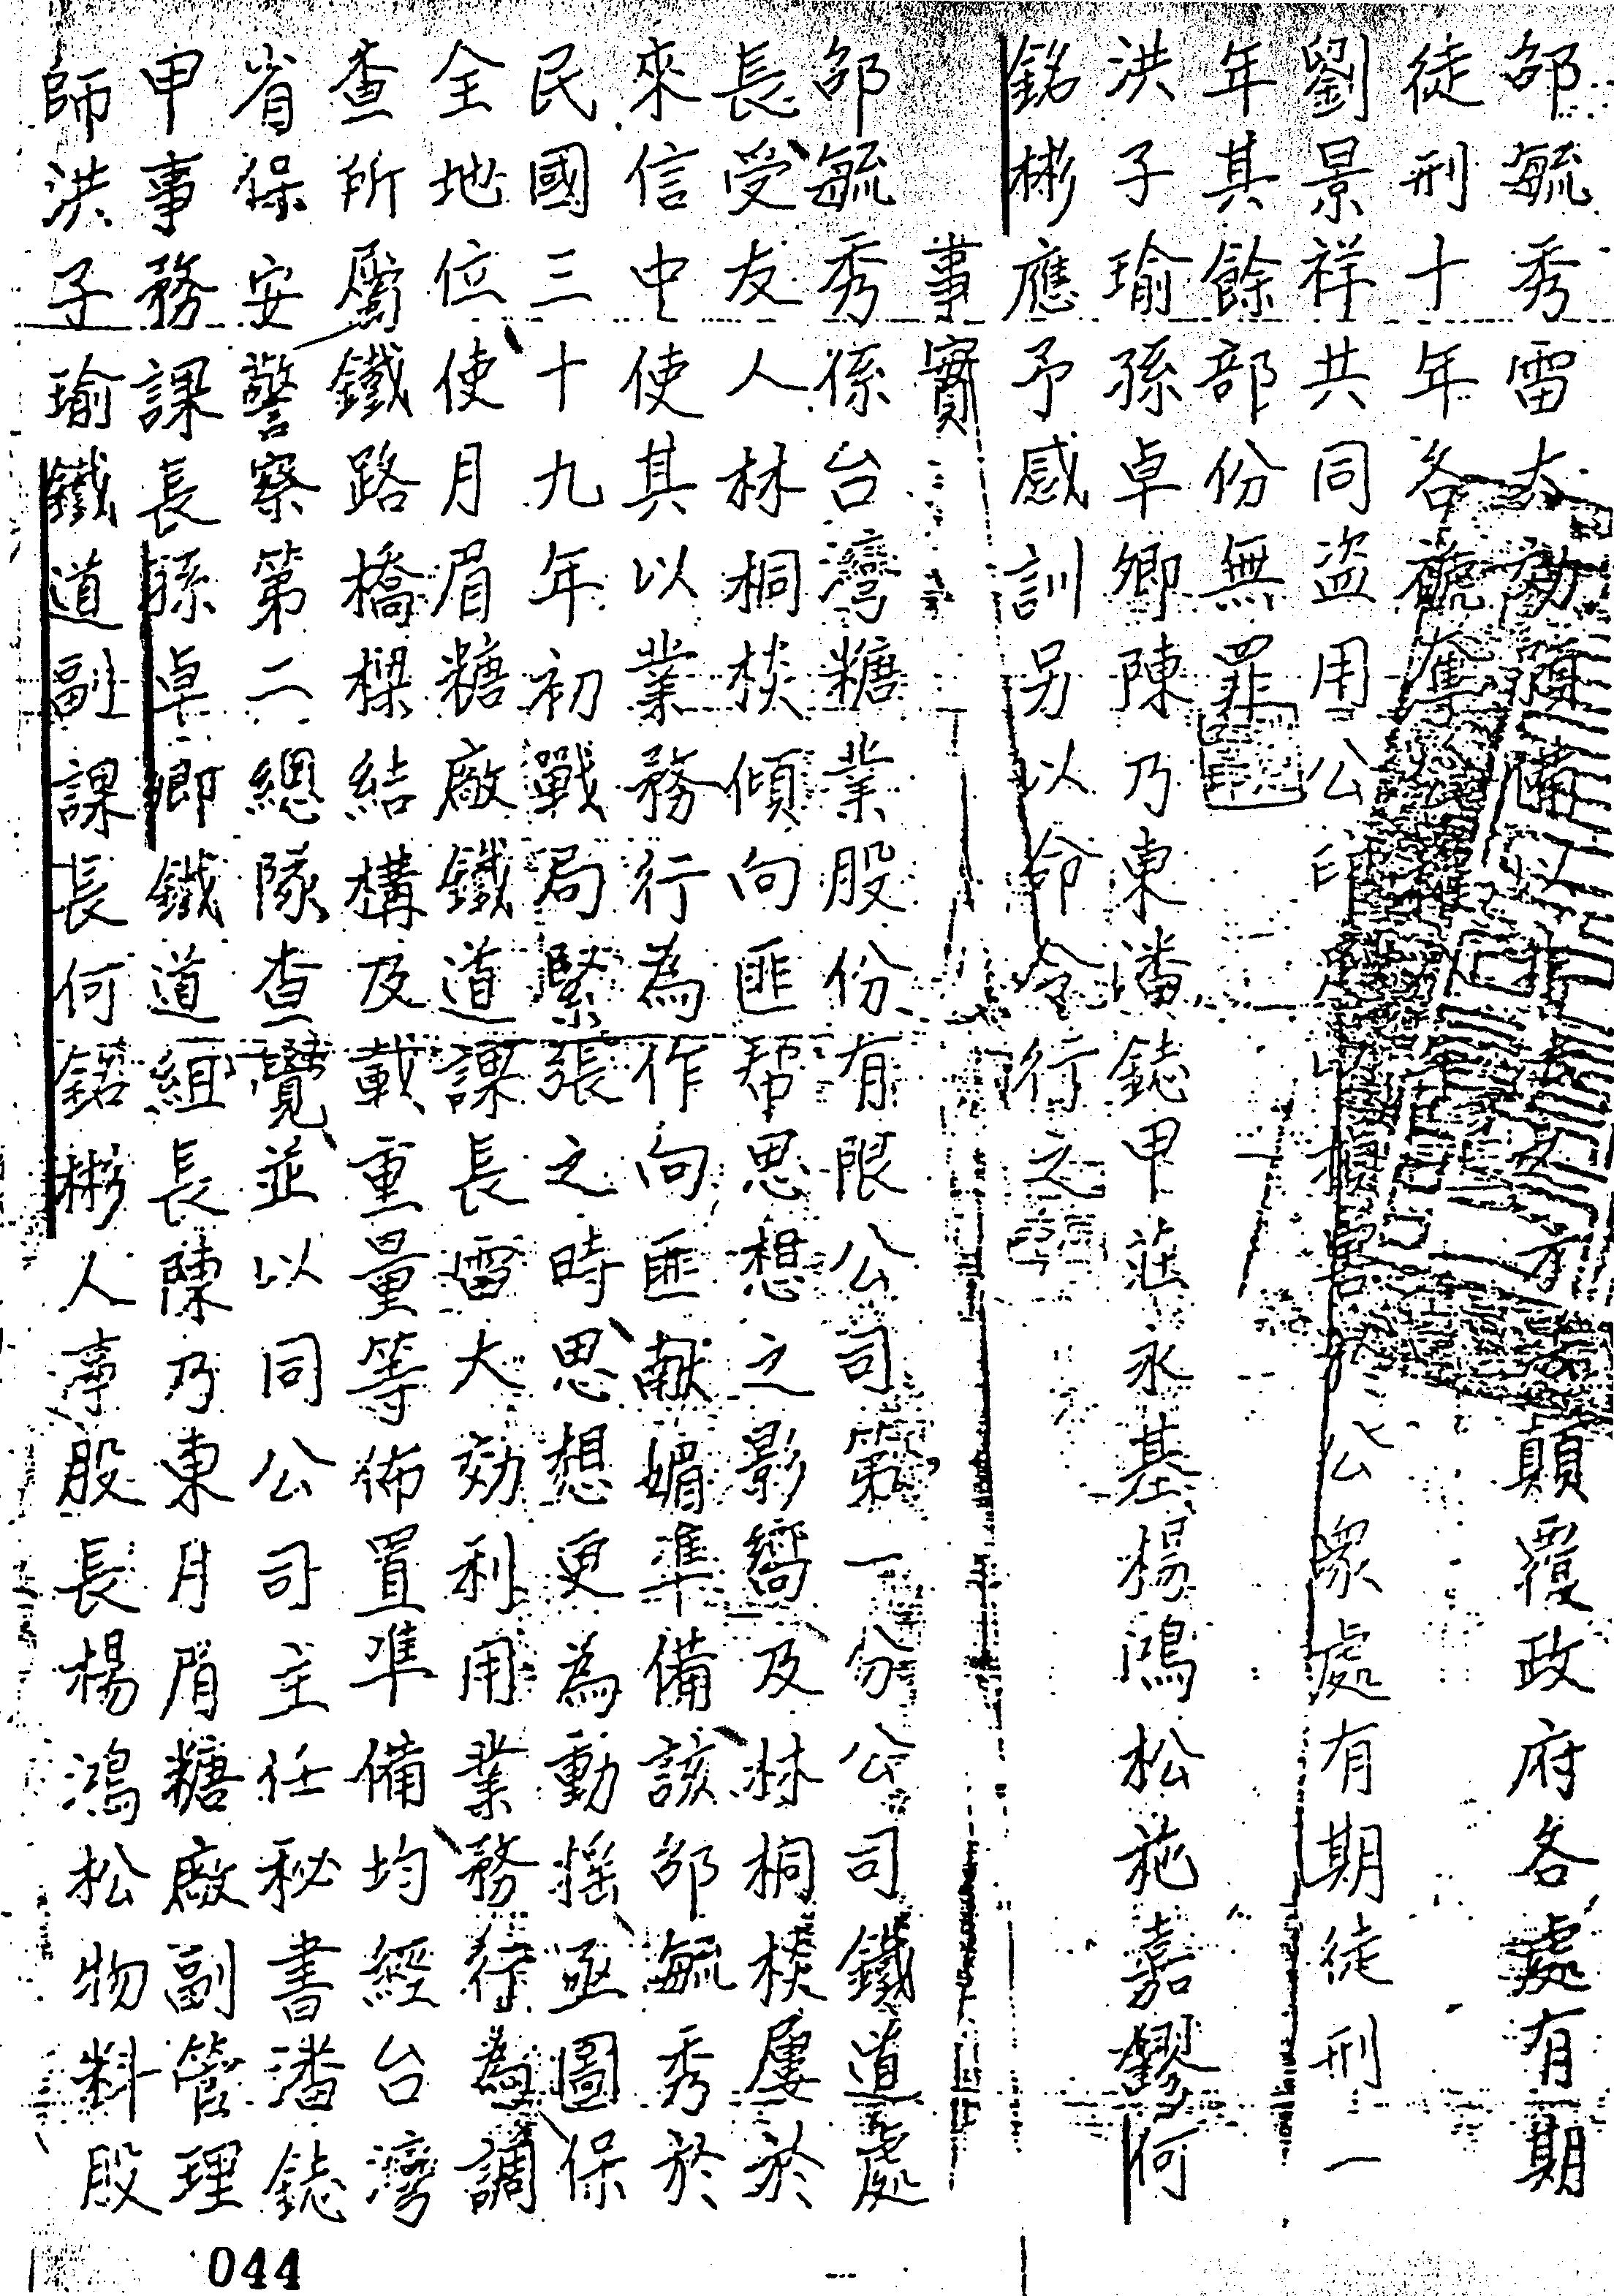 邵毓秀雷大効預備以非法之方法顛覆政府各處有期
徒刑十年各褫奪公權
劉景祥共同盜用公印足以損害於公眾處有期徒刑一
年其餘部份無罪
洪子瑜孫卓卿陳乃東潘鋕甲莊永基楊鴻松施嘉鏐何
銘彬應予感訓另以命令行之
事實
邵毓秀係台灣糖業股份有限公司第一分公司鐵道處
長受友人林桐棪傾向匪帮思想之影嚮及林桐棪屢於
來信中使其以業務行為作向匪献媚準備該邵毓秀於
民國三十九年初戰局緊張之時思想更為動搖亟圖保
全地位使月眉糖廠鐵道課長雷大効利用業務行為調
查所屬鐵路橋樑結構及載重量等佈置準備均經台灣
省保安警察第二總隊查覺並以同公司主任秘書潘鋕
甲事務課長孫卓卿鐵道組長陳乃東月眉糖廠副管理
師洪子瑜鐵道副課長何銘彬人事股長楊鴻松物料股
044